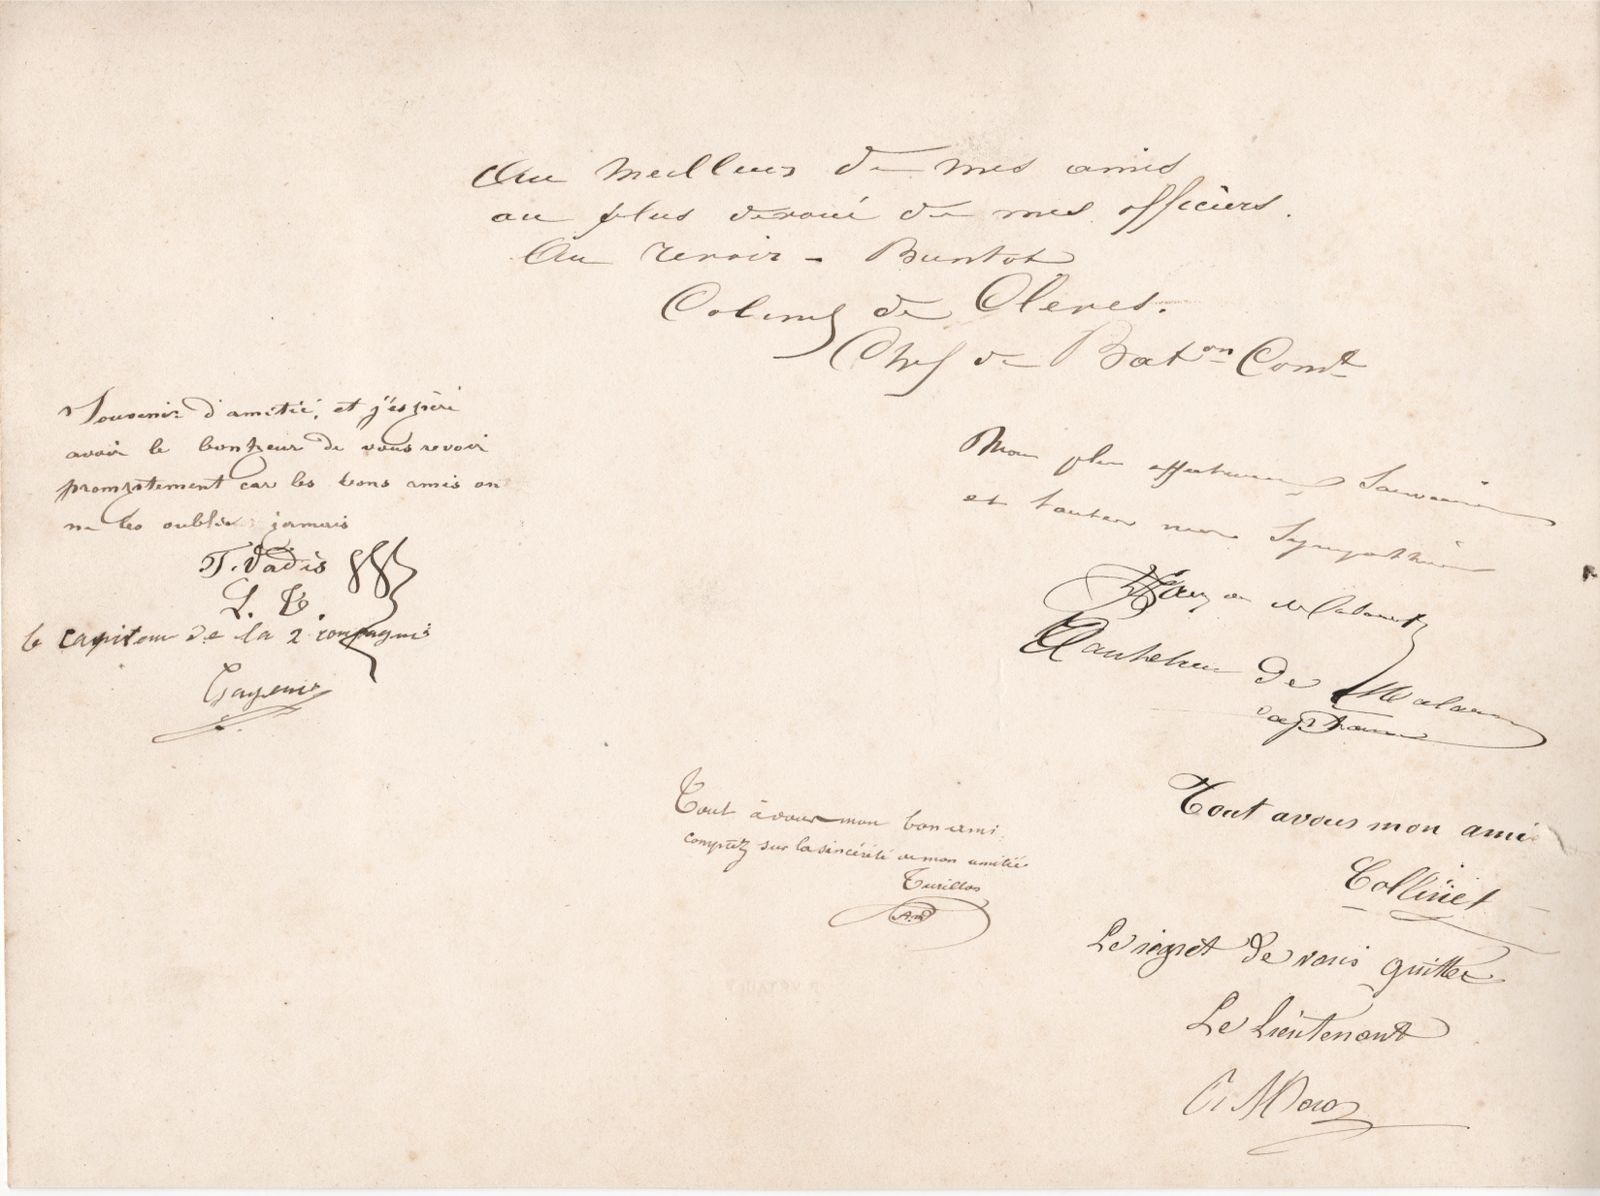 Au meilleur de mes amis
au plus devoué de mes officiers.
Au revoir - Buntot
de Cleres.
Chef de Bat.on Comt
Souvenir d'amitié, et j'espère
avoir le bonheur de vous revoir
promptement car les bons amis on
ne les oublies jamais
T. Vadis
L. T.
le capitaine de la 2e compagnie
Mon plus affectueux Souvenir
et toutes mes Sympathies
de
Capitaine
Tout à vous mon bon ami
comptez sur la sincérité de mon amitié
Turillos
Tout a vous mon ami
Collinet
Le regret de vous quitter
Le Lieutenant